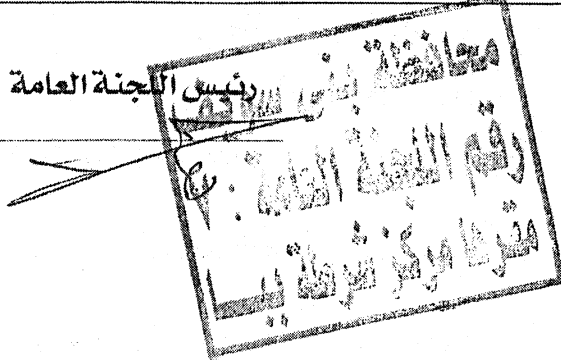 رئيس اللجنة العامة
محافظة بنى سويف
رقم اللجنة العامة : ٧
مقرها مركز شرطة ببا